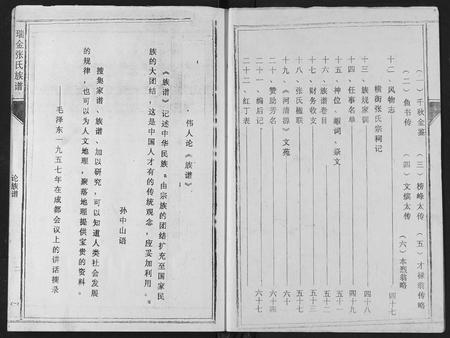 (一) 千秋金鉴
(二) 鱼书传
(三) 榜峰太传
(四) 文缤太传
(五) 才禄翁传略
(六) 本烈翁略
十二、风物志 四十七
横街张氏宗祠记
十三、族规家训 四十八
十四、任事名单 四十九
十五、神位、嘏词、祭文 五十一
十六、族谱卷目 五十二
十七、财务收支 五十三
十八、张氏楹联 五十五
十九、《河清源》文苑 五十七
二十、赞助芳名 六十四
二十一、编后记 六十六
二十二、红丁表 六十七
瑞金张氏族谱
论族谱
伟人论《族谱》
《族谱》记述中华民族。由宗族的团结扩充至国家民
族的大团结,这是中国人才有的传统观念,应妥加利用。
孙中山语
搜集家谱、族谱、加以研究,可以知道人类社会发展
的规律,也可以为人文地理,聚落地理提供宝贵的资料。
——毛泽东一九五七年在成都会议上的讲话摘录